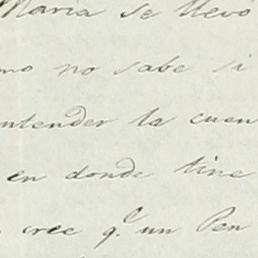 Maria se llevo
mo no sabe si
ntender la cuen
en donde tine
cree qᵉ un Pen